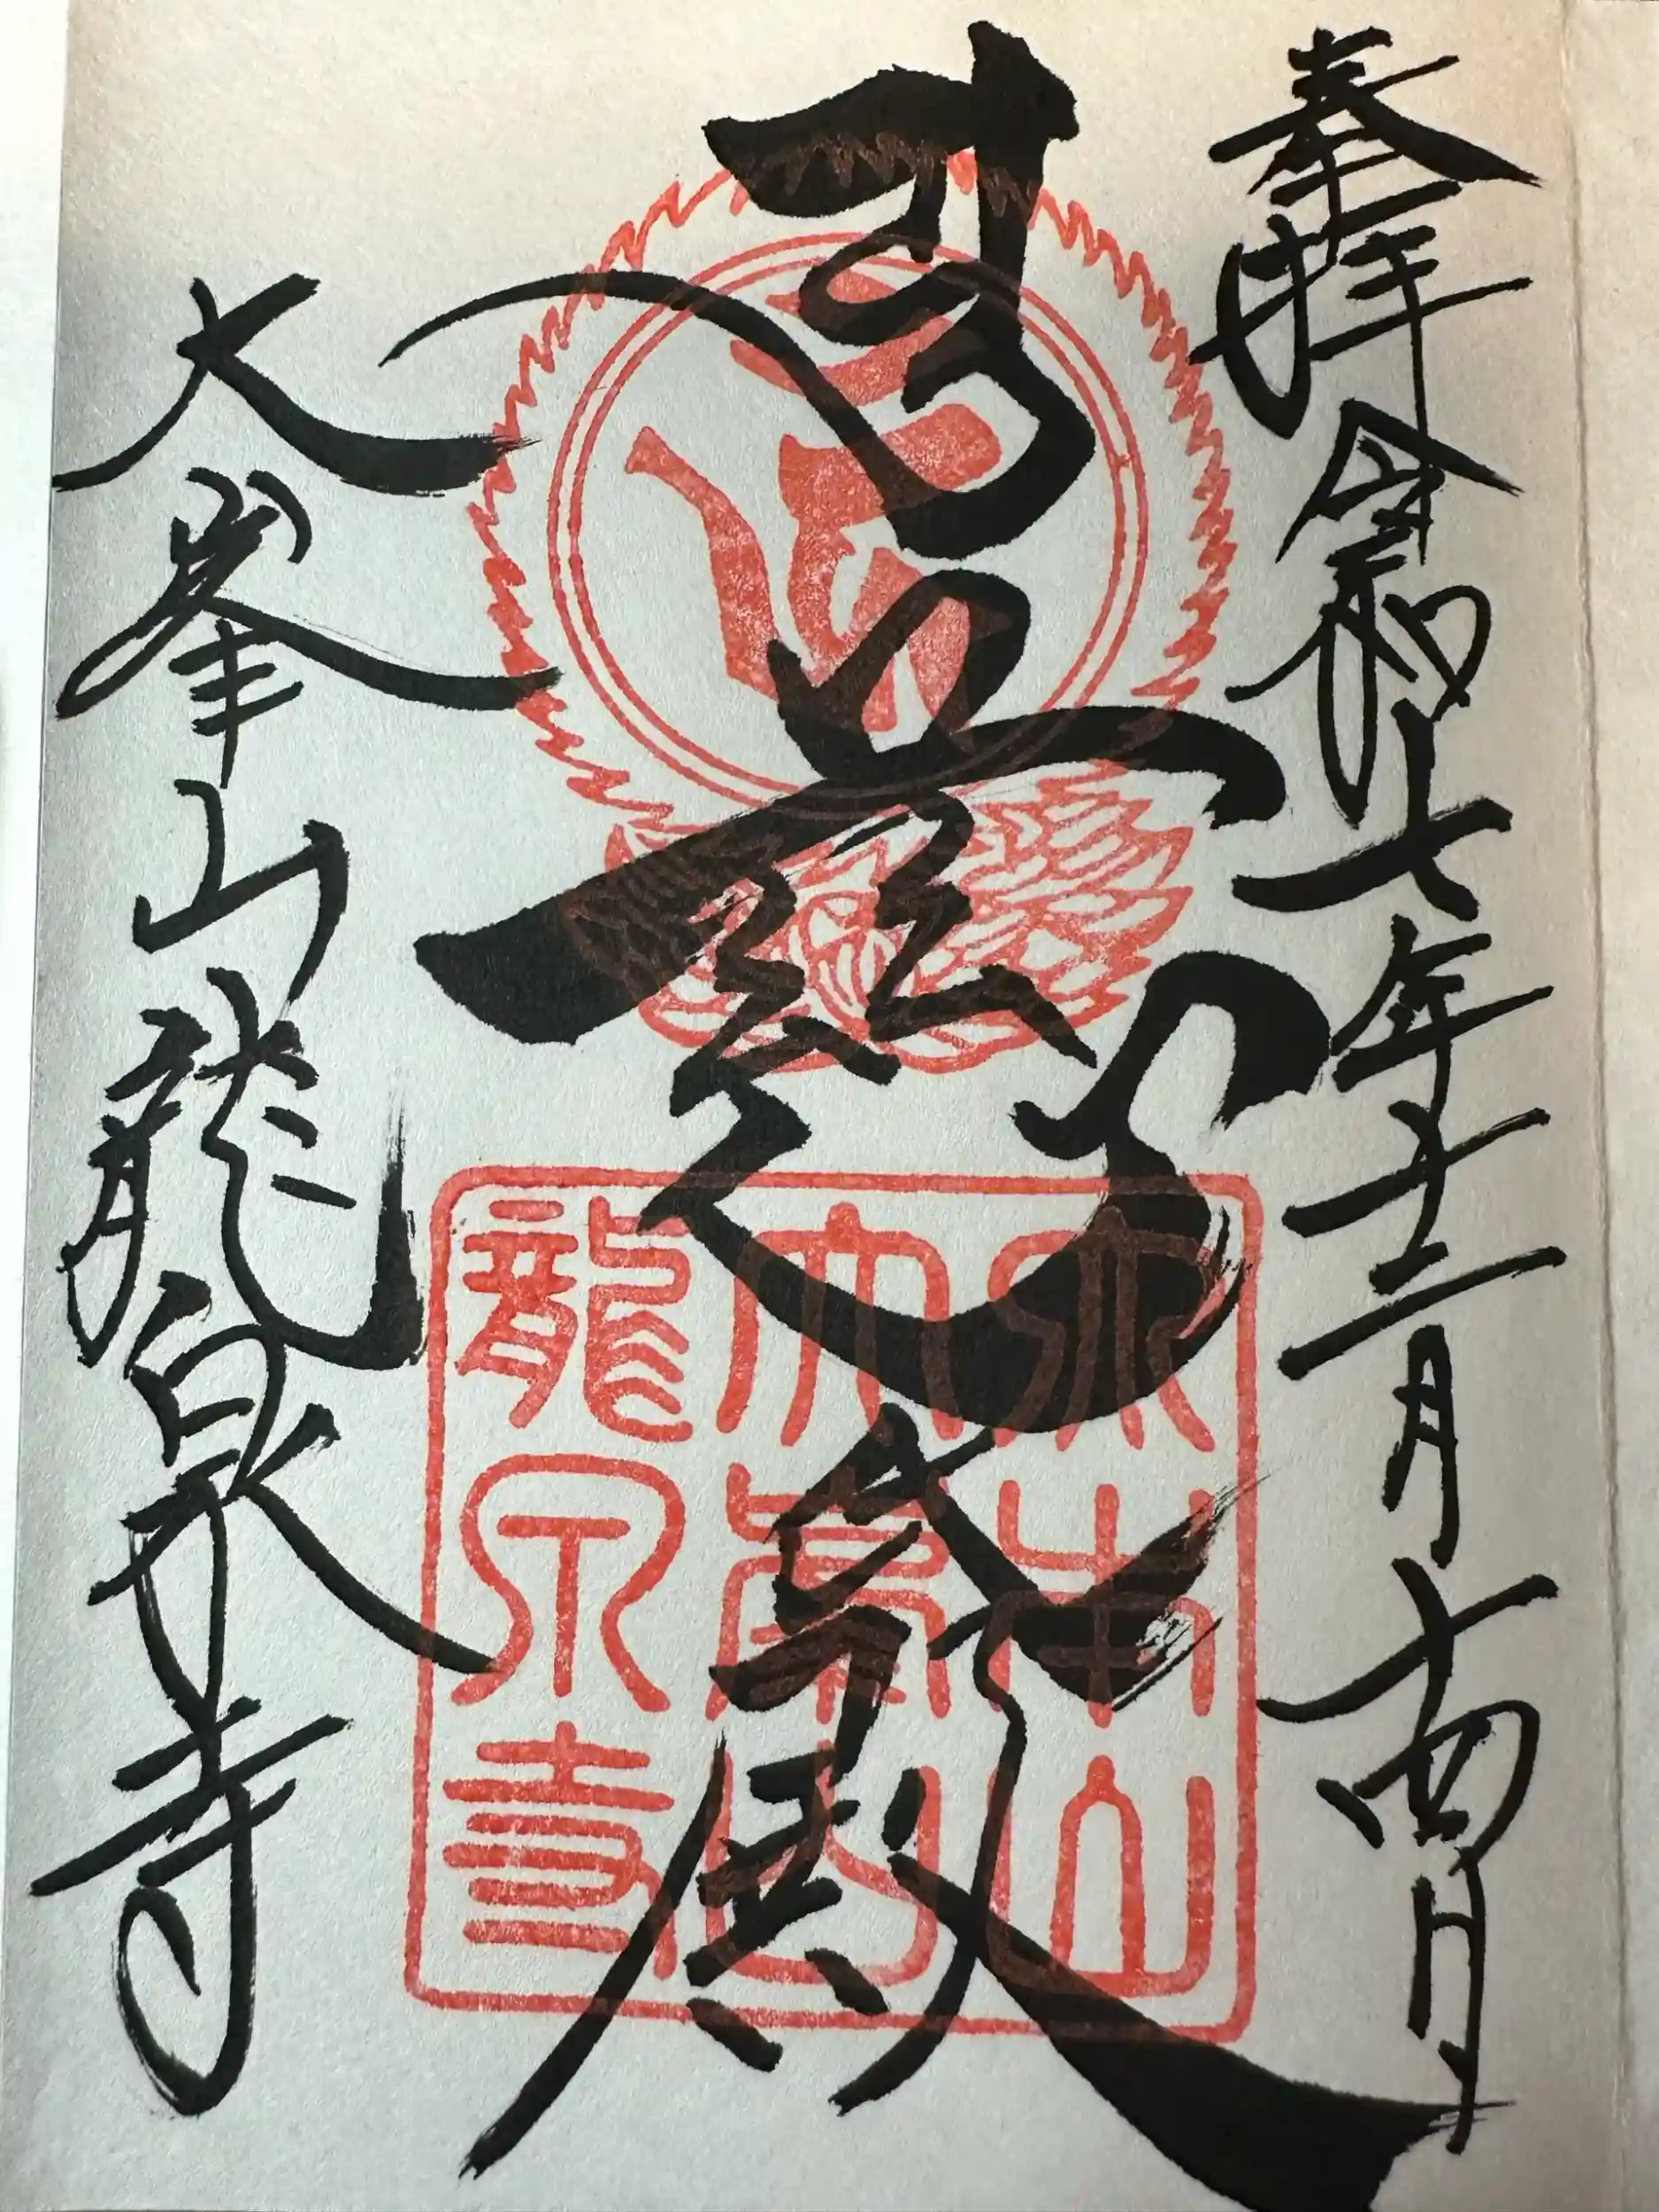 奉拝 令和七年十二月十四日
慈 殿
大峯山龍泉寺
大峯山
龍泉寺